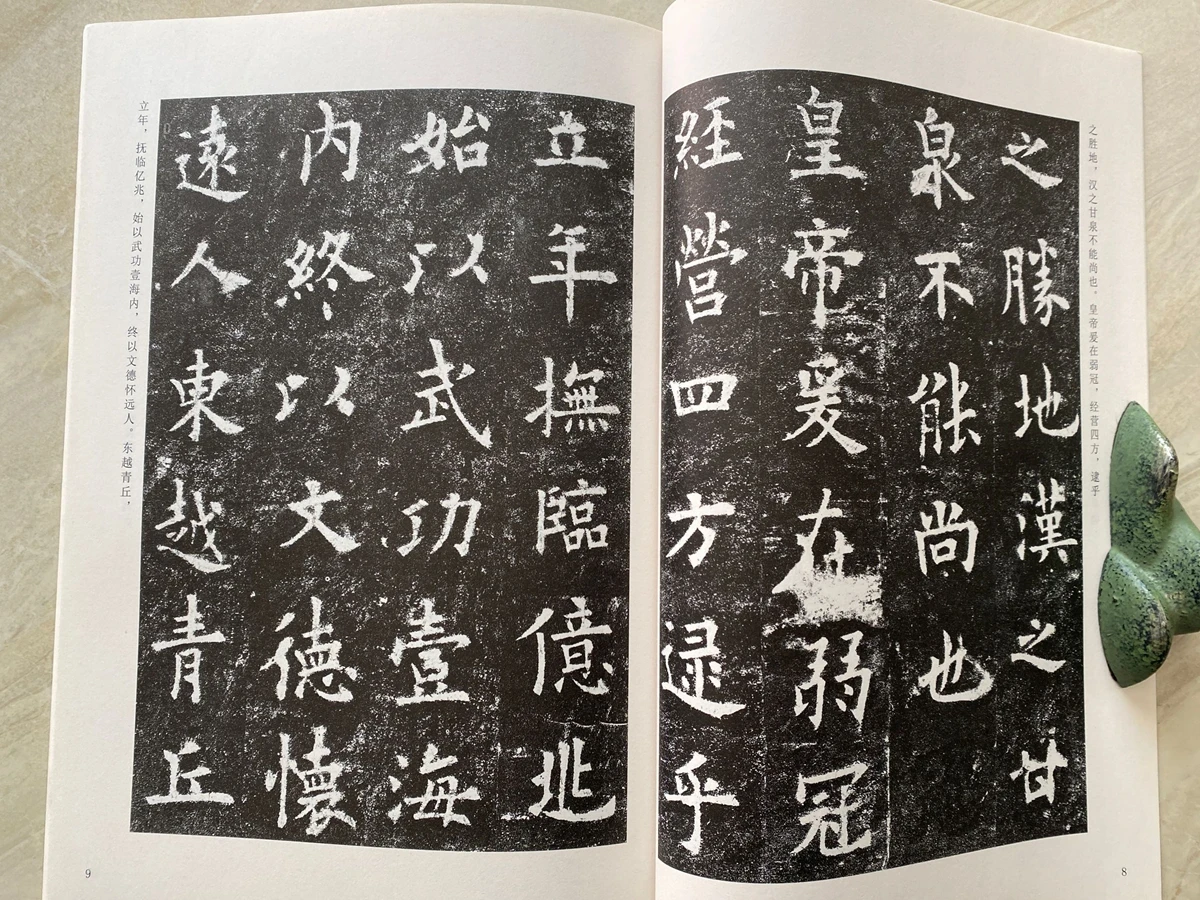 之胜地，汉之甘泉不能尚也。皇帝爰在弱冠，经营四方，逮乎
之勝地漢之甘
泉不能尚也
皇帝爰在弱冠
經營四方逮乎
8
立年撫臨億兆
始以武功壹海
内終以文德懷
遠人東越青丘
立年，抚临亿兆，始以武功壹海内，终以文德怀远人。东越青丘，
9